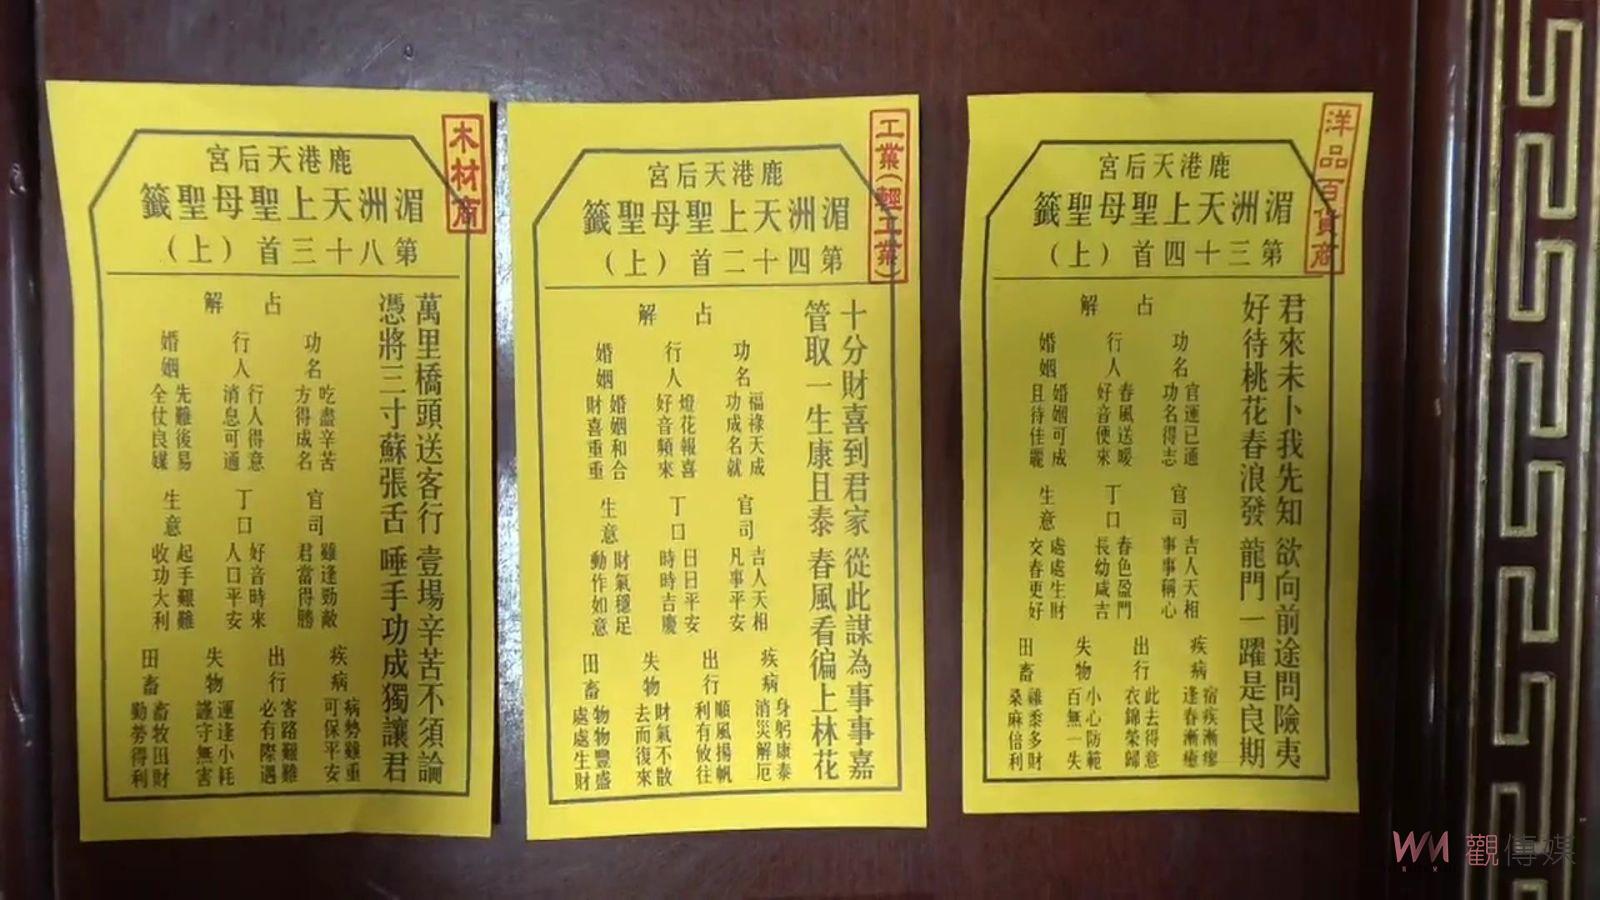 木材商
鹿港天后宮
湄洲天上聖母聖籤
第八十三首（上）
萬里橋頭送客行 壹場辛苦不須論
憑將三寸蘇張舌 唾手功成獨讓君
占解
功名 吃盡辛苦 方得成名
行人 行人得意 消息可通
婚姻 先難後易 全仗良媒
官司 雖逢勁敵 君當得勝
丁口 好音時來 人口平安
生意 起手艱難 收功大利
疾病 病勢雖重 可保平安
出行 客路艱難 必有際遇
失物 運逢小耗 謹守無害
田畜 畜牧田財 勤勞得利
工業（輕工業）
鹿港天后宮
湄洲天上聖母聖籤
第四十二首（上）
十分財喜到君家 從此謀為事事嘉
管取一生康且泰 春風看徧上林花
占解
功名 福祿天成 功成名就
行人 燈花報喜 好音頻來
婚姻 婚姻和合 財喜重重
官司 吉人天相 凡事平安
丁口 日日平安 時時吉慶
生意 財氣穩足 動作如意
疾病 身躬康泰 消災解厄
出行 順風揚帆 利有攸往
失物 財氣不散 去而復來
田畜 物物豐盛 處處生財
洋品百貨商
鹿港天后宮
湄洲天上聖母聖籤
第三十四首（上）
君來未卜我先知 欲向前途問險夷
好待桃花春浪發 龍門一躍是良期
占解
功名 官運已通 功名得志
行人 春風送暖 好音便來
婚姻 婚姻可成 且待佳麗
官司 吉人天相 事事稱心
丁口 春色盈門 長幼咸吉
生意 處處生財 交春更好
疾病 宿疾漸瘳 逢春漸癒
出行 此去得意 衣錦榮歸
失物 小心防範 百無一失
田畜 雞黍多財 桑麻倍利
觀傳媒